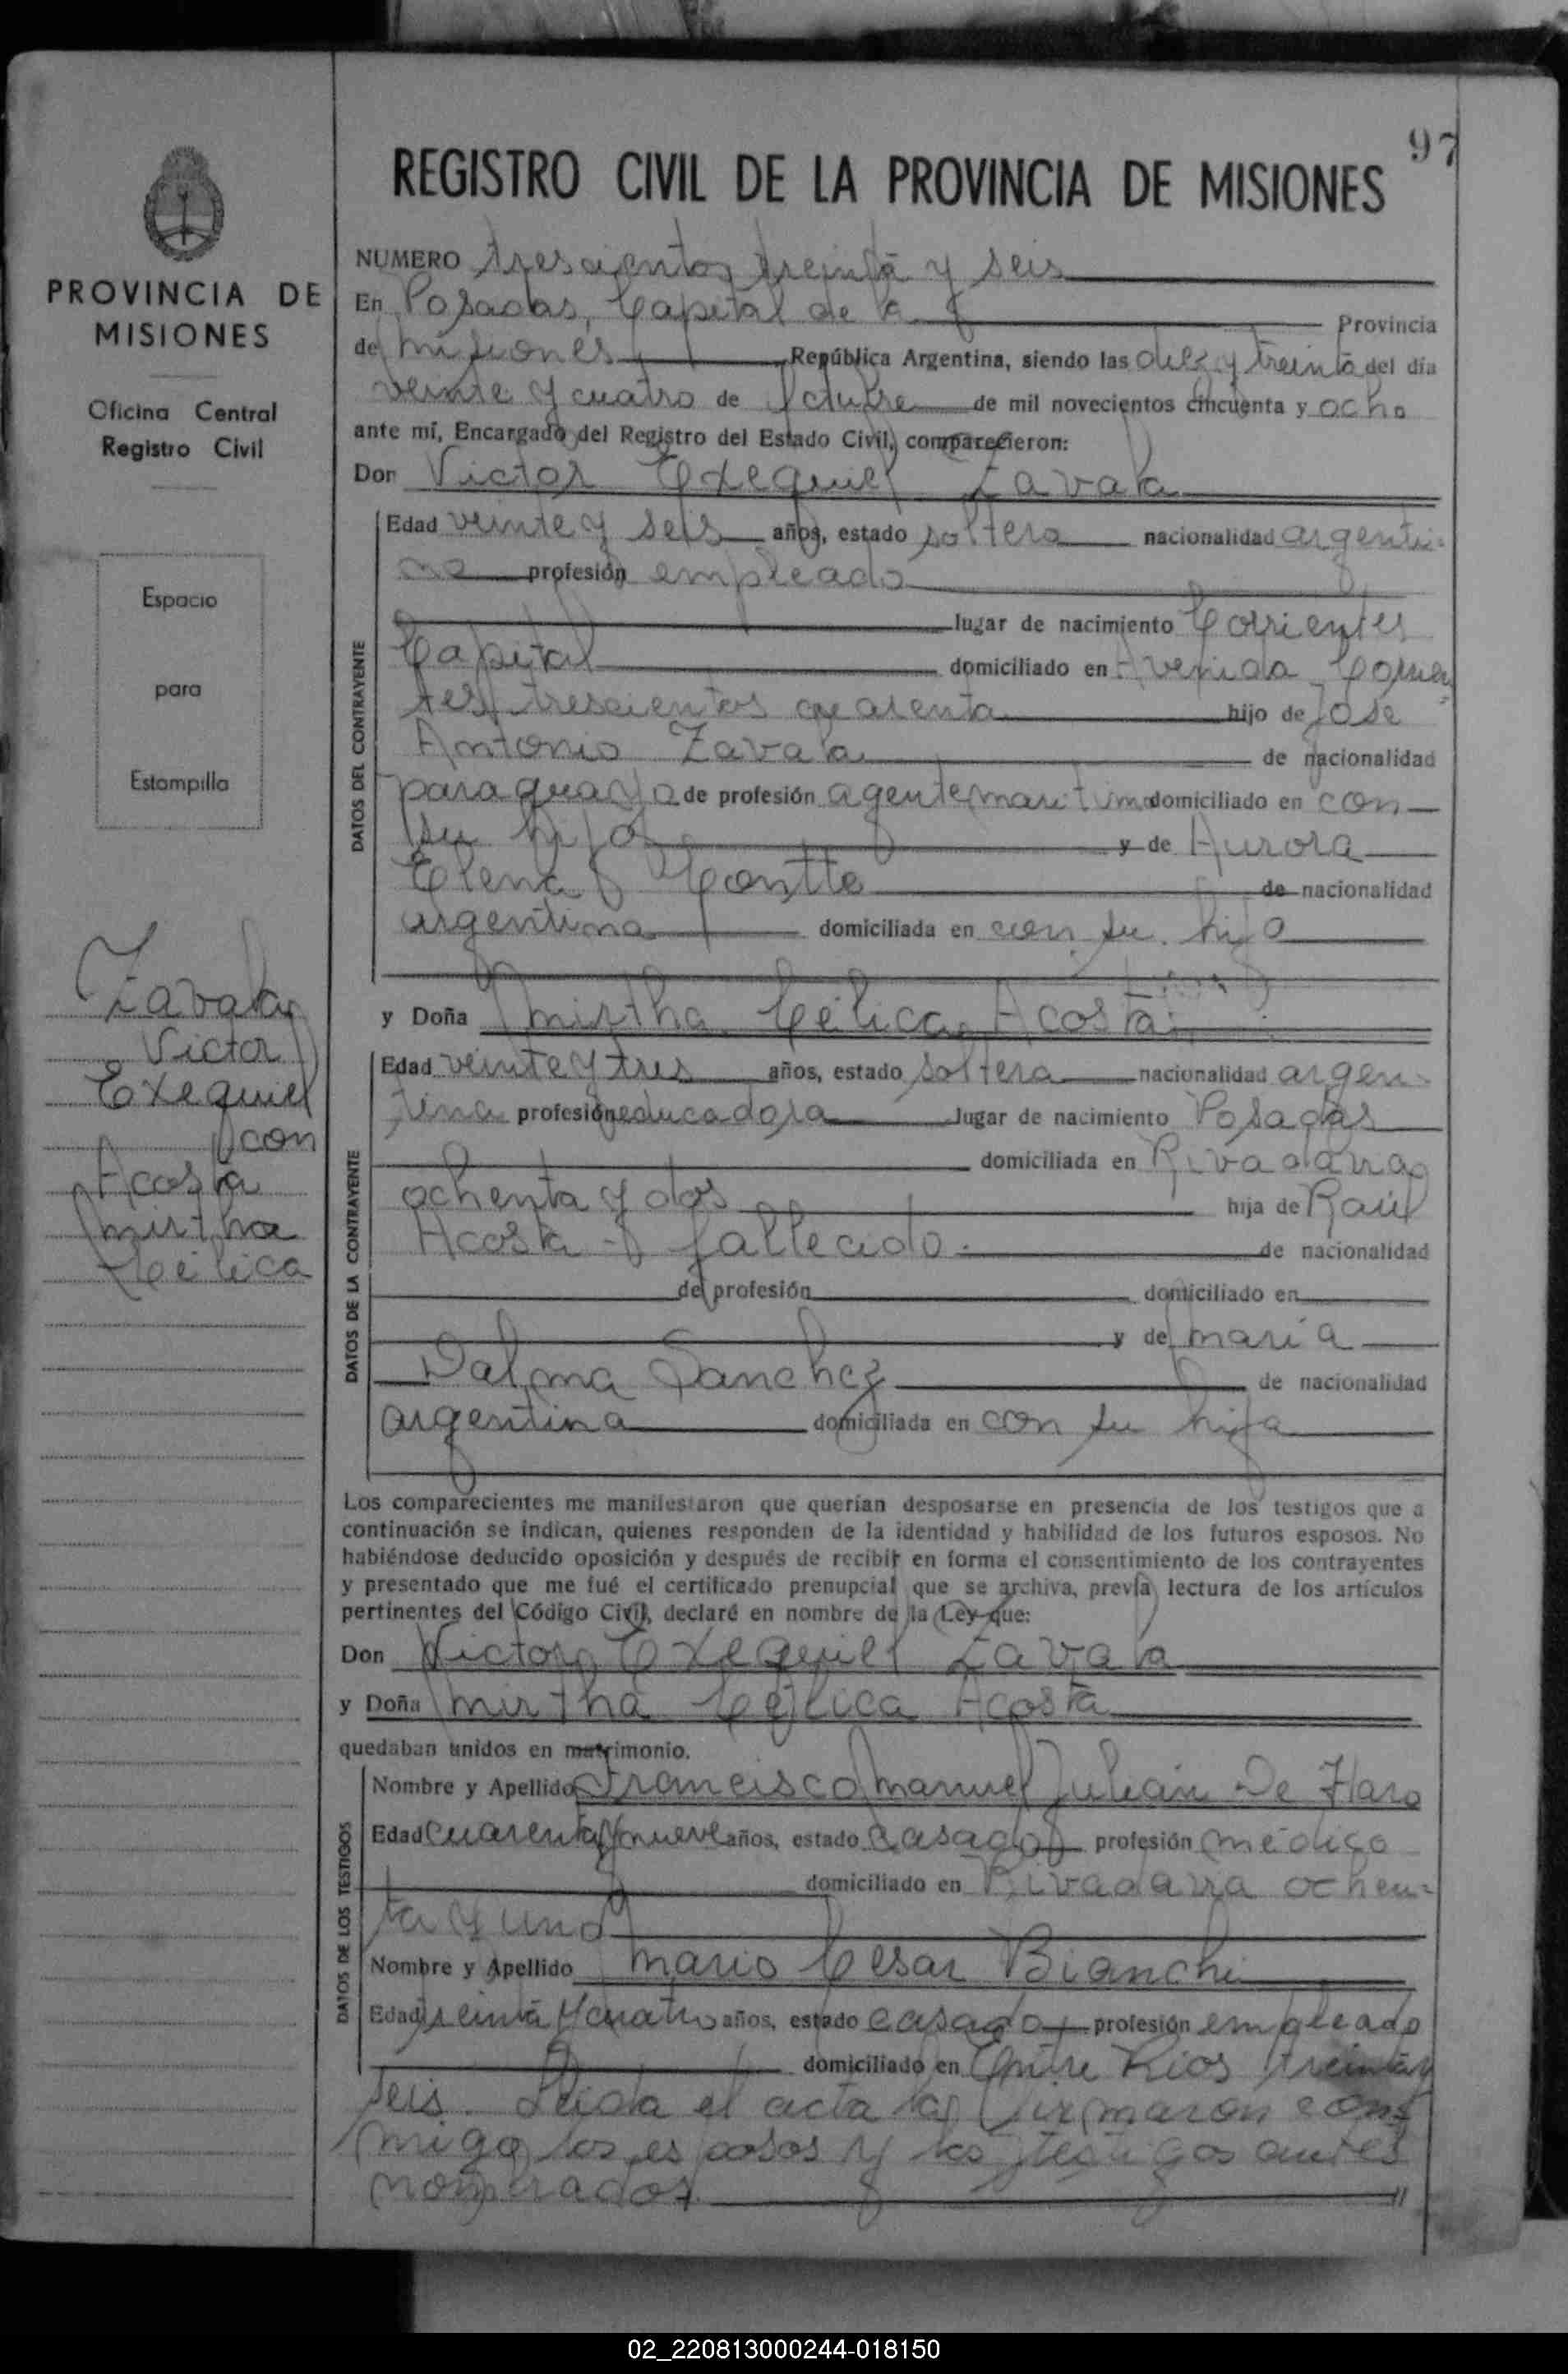 97
REGISTRO CIVIL DE LA PROVINCIA DE MISIONES
PROVINCIA DE
MISIONES
Oficina Central
Registro Civil
Espacio
para
Estampilla
Zavala
Victor
Exequiel
con
Acosta
Mirtha
Célica
NUMERO trescientos treinta y seis
En Posadas, Capital de la Provincia
de Misiones República Argentina, siendo las diez y treinta del día
veinte y cuatro de Octubre de mil novecientos cincuenta y ocho
ante mí, Encargado del Registro del Estado Civil, comparecieron:
Don Victor Exequiel Zavala
DATOS DEL CONTRAYENTE
Edad veinte y seis años, estado soltero nacionalidad argenti-
no profesión empleado
lugar de nacimiento Corrientes
Capital domiciliado en Avenida Corrien
tes trescientos cuarenta hijo de José
Antonio Zavala de nacionalidad
paraguaya de profesión agente maritimo domiciliado en con
su hijo y de Aurora
Elena de nacionalidad
argentina domiciliada en con su hijo
y Doña Mirtha Célica Acosta
DATOS DE LA CONTRAYENTE
Edad veinte y tres años, estado soltera nacionalidad argen-
tina profesión educadora lugar de nacimiento Posadas
domiciliada en Rivadavia
ochenta y dos hija de Raúl
Acosta - fallecido - de nacionalidad
de profesión domiciliado en
y de María
Dalma Sanchez de nacionalidad
argentina domiciliada en con su hija
Los comparecientes me manifestaron que querían desposarse en presencia de los testigos que a
continuación se indican, quienes responden de la identidad y habilidad de los futuros esposos. No
habiéndose deducido oposición y después de recibir en forma el consentimiento de los contrayentes
y presentado que me fué el certificado prenupcial que se archiva, previa lectura de los artículos
pertinentes del Código Civil, declaré en nombre de la Ley que:
Don Victor Exequiel Zavala
y Doña Mirtha Célica Acosta
quedaban unidos en matrimonio.
DATOS DE LOS TESTIGOS
Nombre y Apellido Francisco Manuel Julián De Haro
Edad cuarenta y nueve años, estado casado profesión médico
domiciliado en Rivadavia ochen-
ta y uno
Nombre y Apellido Mario Cesar Bianchi
Edad treinta y cuatro años, estado casado profesión empleado
domiciliado en Entre Rios treinta y
seis. Leida el acta la firmaron con-
migo los esposos y los testigos antes
nombrados.
02_220813000244-018150